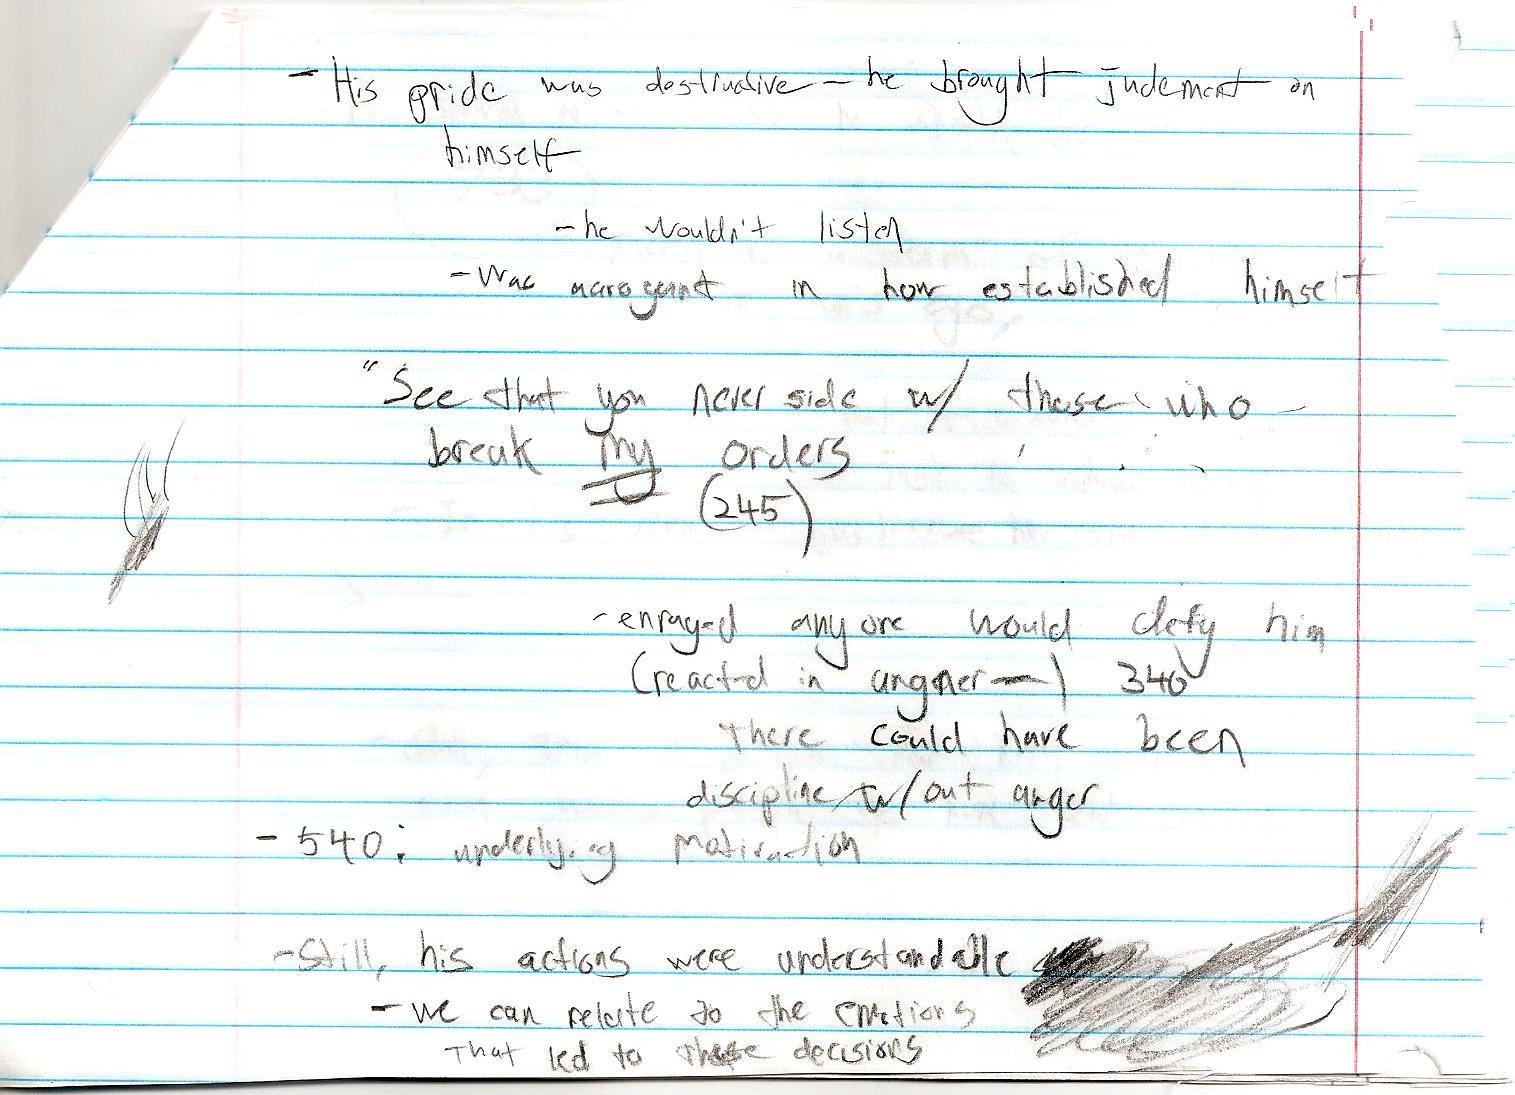 - His pride was destructive - he brought judement on
himself
- he wouldn't listen
- was in how established himself
"See that you never side w/ those who
break my orders
(245)
- enraged anyone would defy him
(reacted in angner —) 340
there could have been
discipline w/out anger
- 540: underlying motivation
- Still, his actions were understandable
- we can relate to the emotions
that led to these decisions